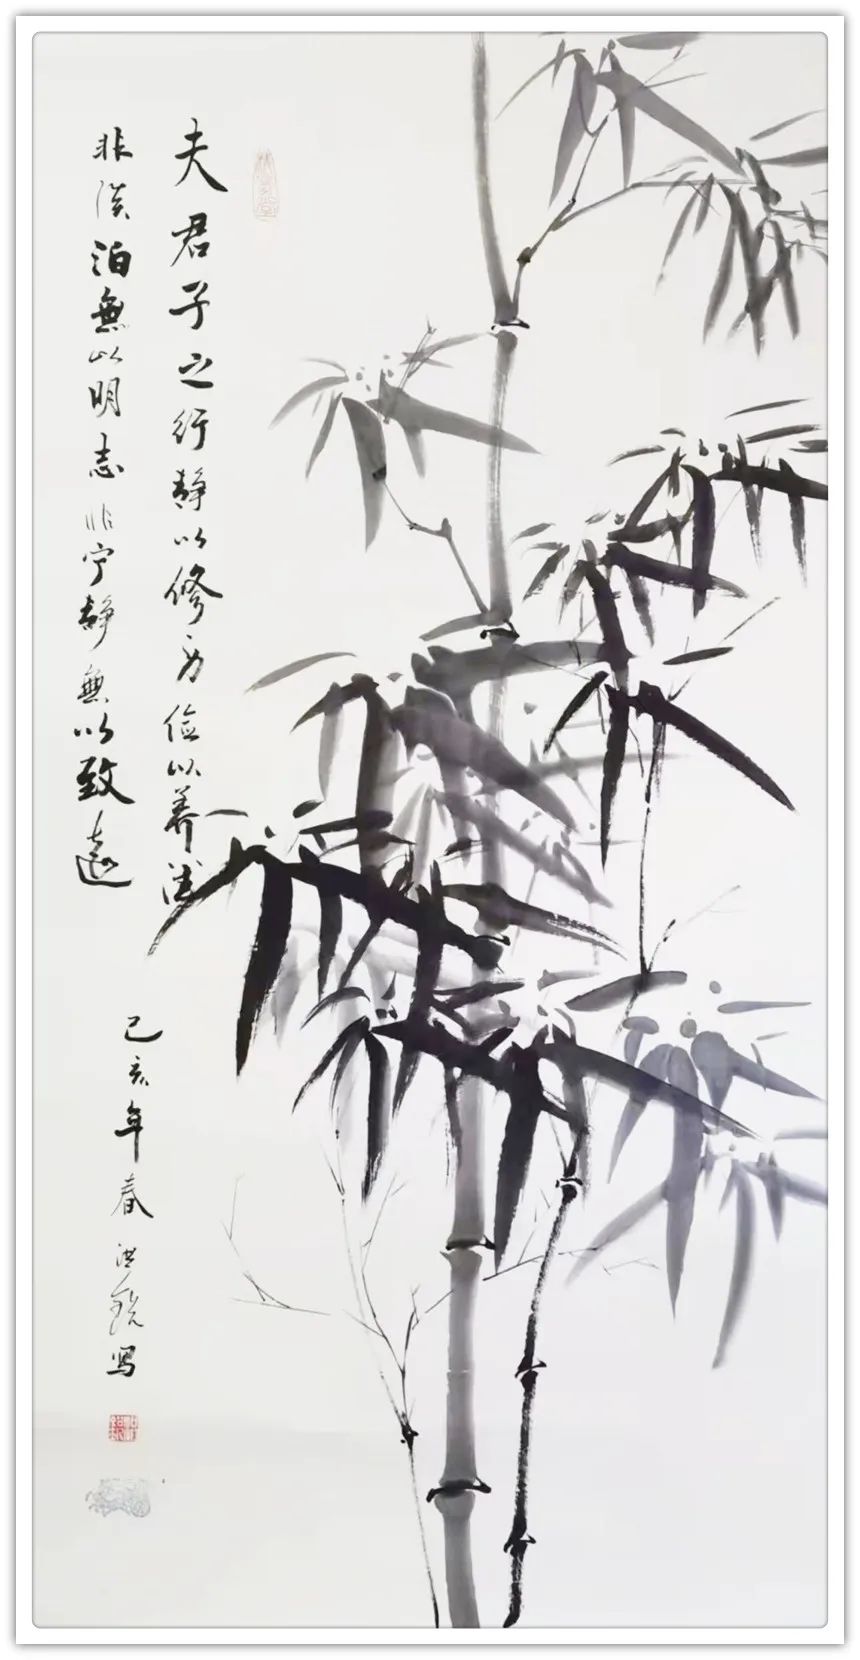 夫君子之行静以修身俭以养德
非淡泊無以明志非宁静無以致遠
己亥年春洪銳写